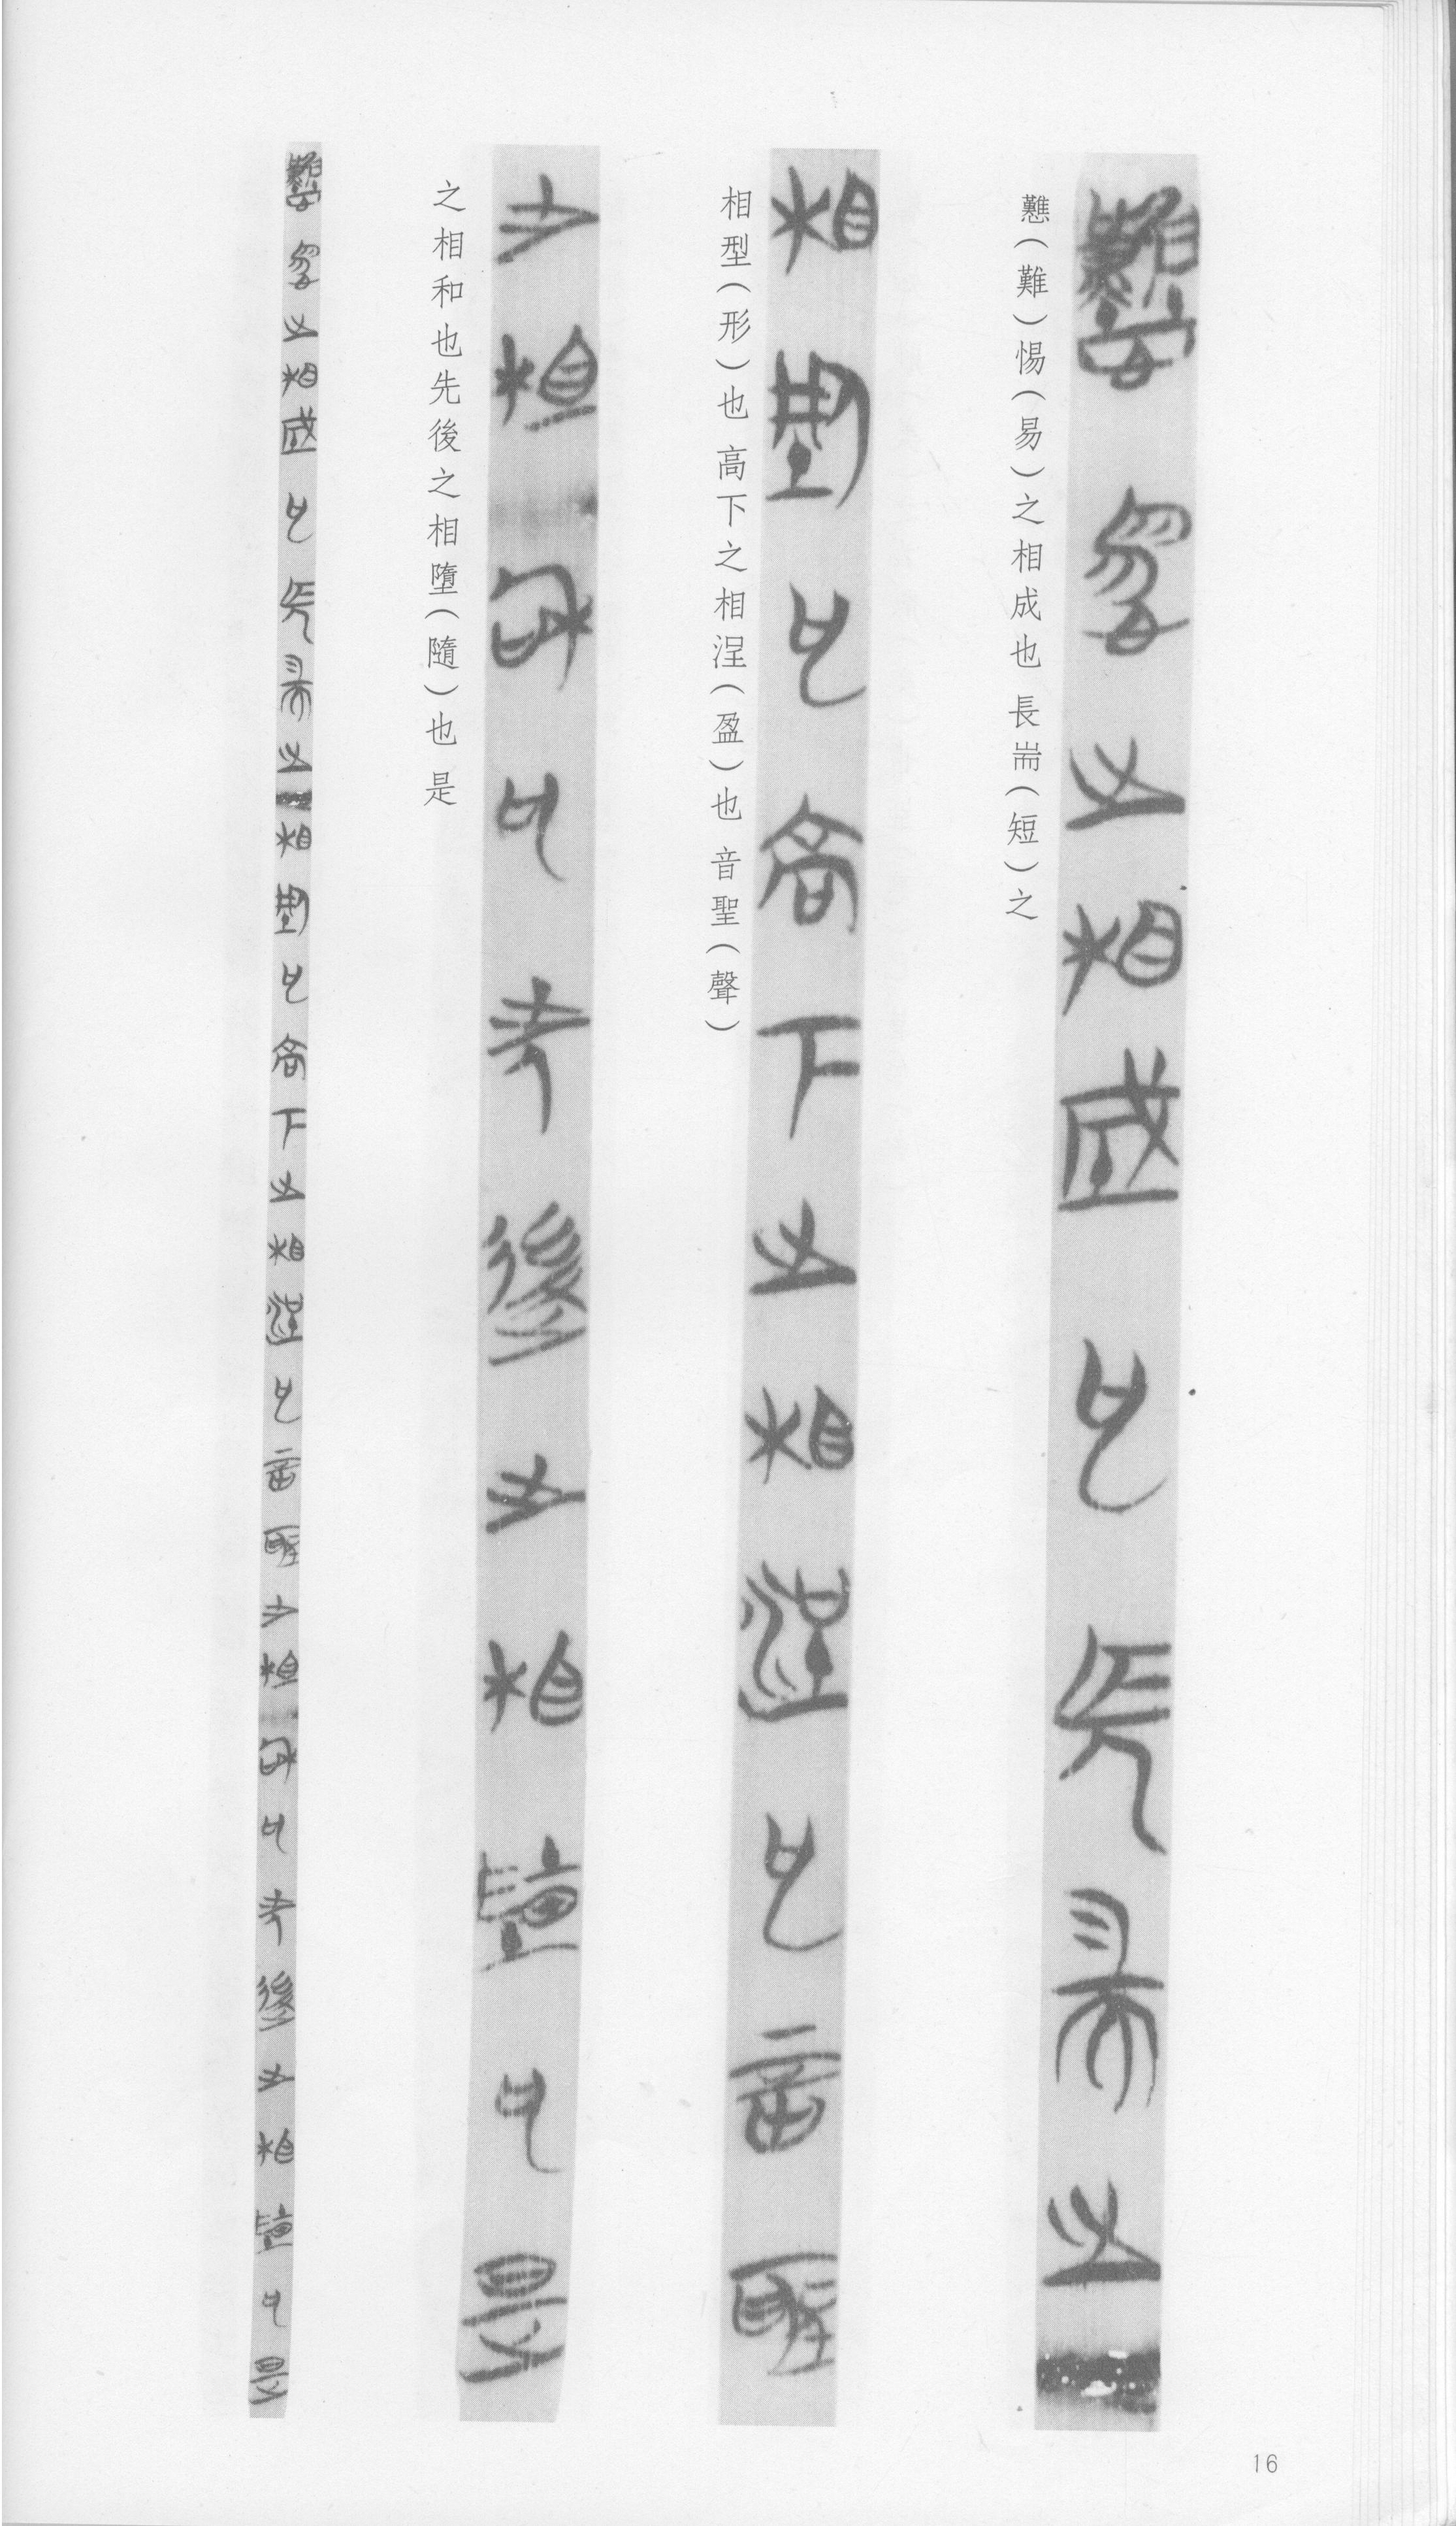 戁（難）惕（易）之相成也 長耑（短）之
相型（形）也 高下之相浧（盈）也 音聖（聲）
之相和也先後之相墮（隨）也 是
16